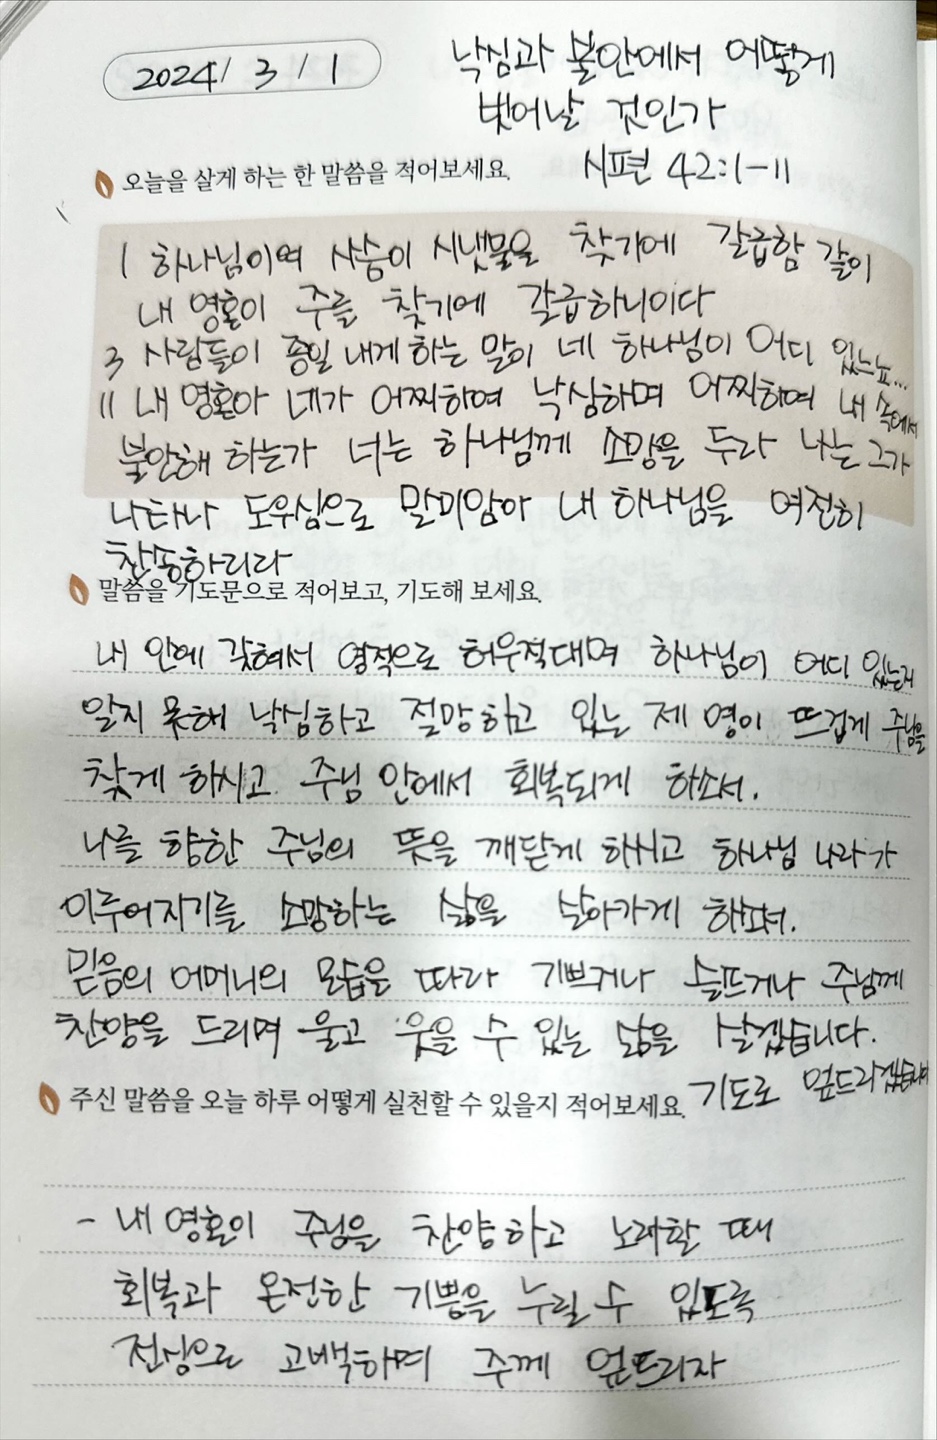 2024/ 3 / 1
낙심과 불안에서 어떻게
벗어날 것인가
오늘을 살게 하는 한 말씀을 적어보세요.
시편 42:1-11
1 하나님이여 사슴이 시냇물을 찾기에 갈급함 같이
내 영혼이 주를 찾기에 갈급하니이다
3 사람들이 종일 내게 하는 말이 네 하나님이 어디 있느뇨...
11 내 영혼아 네가 어찌하여 낙심하며 어찌하여 내 속에서
불안해 하는가 너는 하나님께 소망을 두라 나는 그가
나타나 도우심으로 말미암아 내 하나님을 여전히
찬송하리라
말씀을 기도문으로 적어보고, 기도해 보세요.
내 안에 갇혀서 영적으로 허우적대며 하나님이 어디 있는지
알지 못해 낙심하고 절망하고 있는 제 영이 뜨겁게 주님을
찾게 하시고 주님 안에서 회복되게 하소서.
나를 향한 주님의 뜻을 깨닫게 하시고 하나님 나라가
이루어지기를 소망하는 삶을 살아가게 하소서.
믿음의 어머니의 모습을 따라 기쁘거나 슬프거나 주님께
찬양을 드리며 울고 웃을 수 있는 삶을 살겠습니다.
기도로 엎드리겠습니다
주신 말씀을 오늘 하루 어떻게 실천할 수 있을지 적어보세요.
- 내 영혼이 주님을 찬양하고 노래할 때
회복과 온전한 기쁨을 누릴 수 있도록
전심으로 고백하며 주께 엎드리자